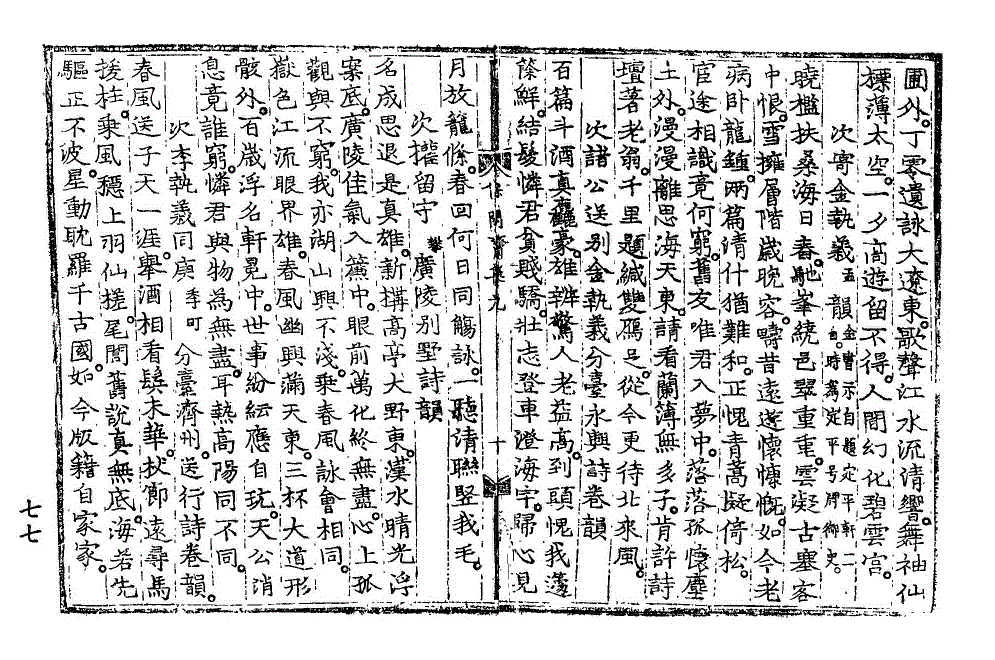 圃外。丁零遺詠大遼東。歌聲江水流清響。舞袖仙
標薄太空。一夕高遊留不得。人間幻化碧雲宮。
次寄金執義孟韻
曉檻扶桑海日春。馳峯繞邑翠重重。雲凝古塞客
中恨。雪擁層階歲晚容。疇昔遠遊懷慷慨。如今老
病臥龍鍾。兩篇淸什猶難和。正愧青蒿凝倚松。
宦途相識竟何窮。舊友唯君入夢中。落落孤懷塵
土外。漫漫離思海天東。請看蘭簿無多子。肯許詩
壇著老翁。千里題緘雙鴈足。從今更待北來風。
次諸公送別金執義分臺永興詩卷韻
百篇斗酒眞麤豪。雄辨驚人老益高。到頭愧我簿
條鮮。結髮憐君貧賤驕。壯志登車澄海宇。歸心見
月放籠條。春回何日同觴詠。一聽淸聯竪我毛。
次權留守 擥 廣陵別墅詩韻
名成思退是眞雄。新構高亭大野東。漢水晴光浮
案底。廣陵佳氣入簾中。眼前萬化終無盡。心上孤
觀與不窮。我亦湖山興不淺。乘春風詠會相同。
嶽色江流眼界雄。春風幽興滿天東。三杯大道形
骸外。百歲浮名軒冕中。世事紛紜應自玩。天公消
息竟誰窮。憐君與物爲無盡。耳熱高陽同不同。
次李執義同庚 季町 分臺濟州。送行詩卷韻。
春風送子天一涯。擧酒相看鬢未華。杖節遠尋馬
援柱。乘風穩上羽仙槎。尾閭舊說眞無底。海若先
驅正不波。星動耽羅千古國。如今版籍自家家。
十
七七